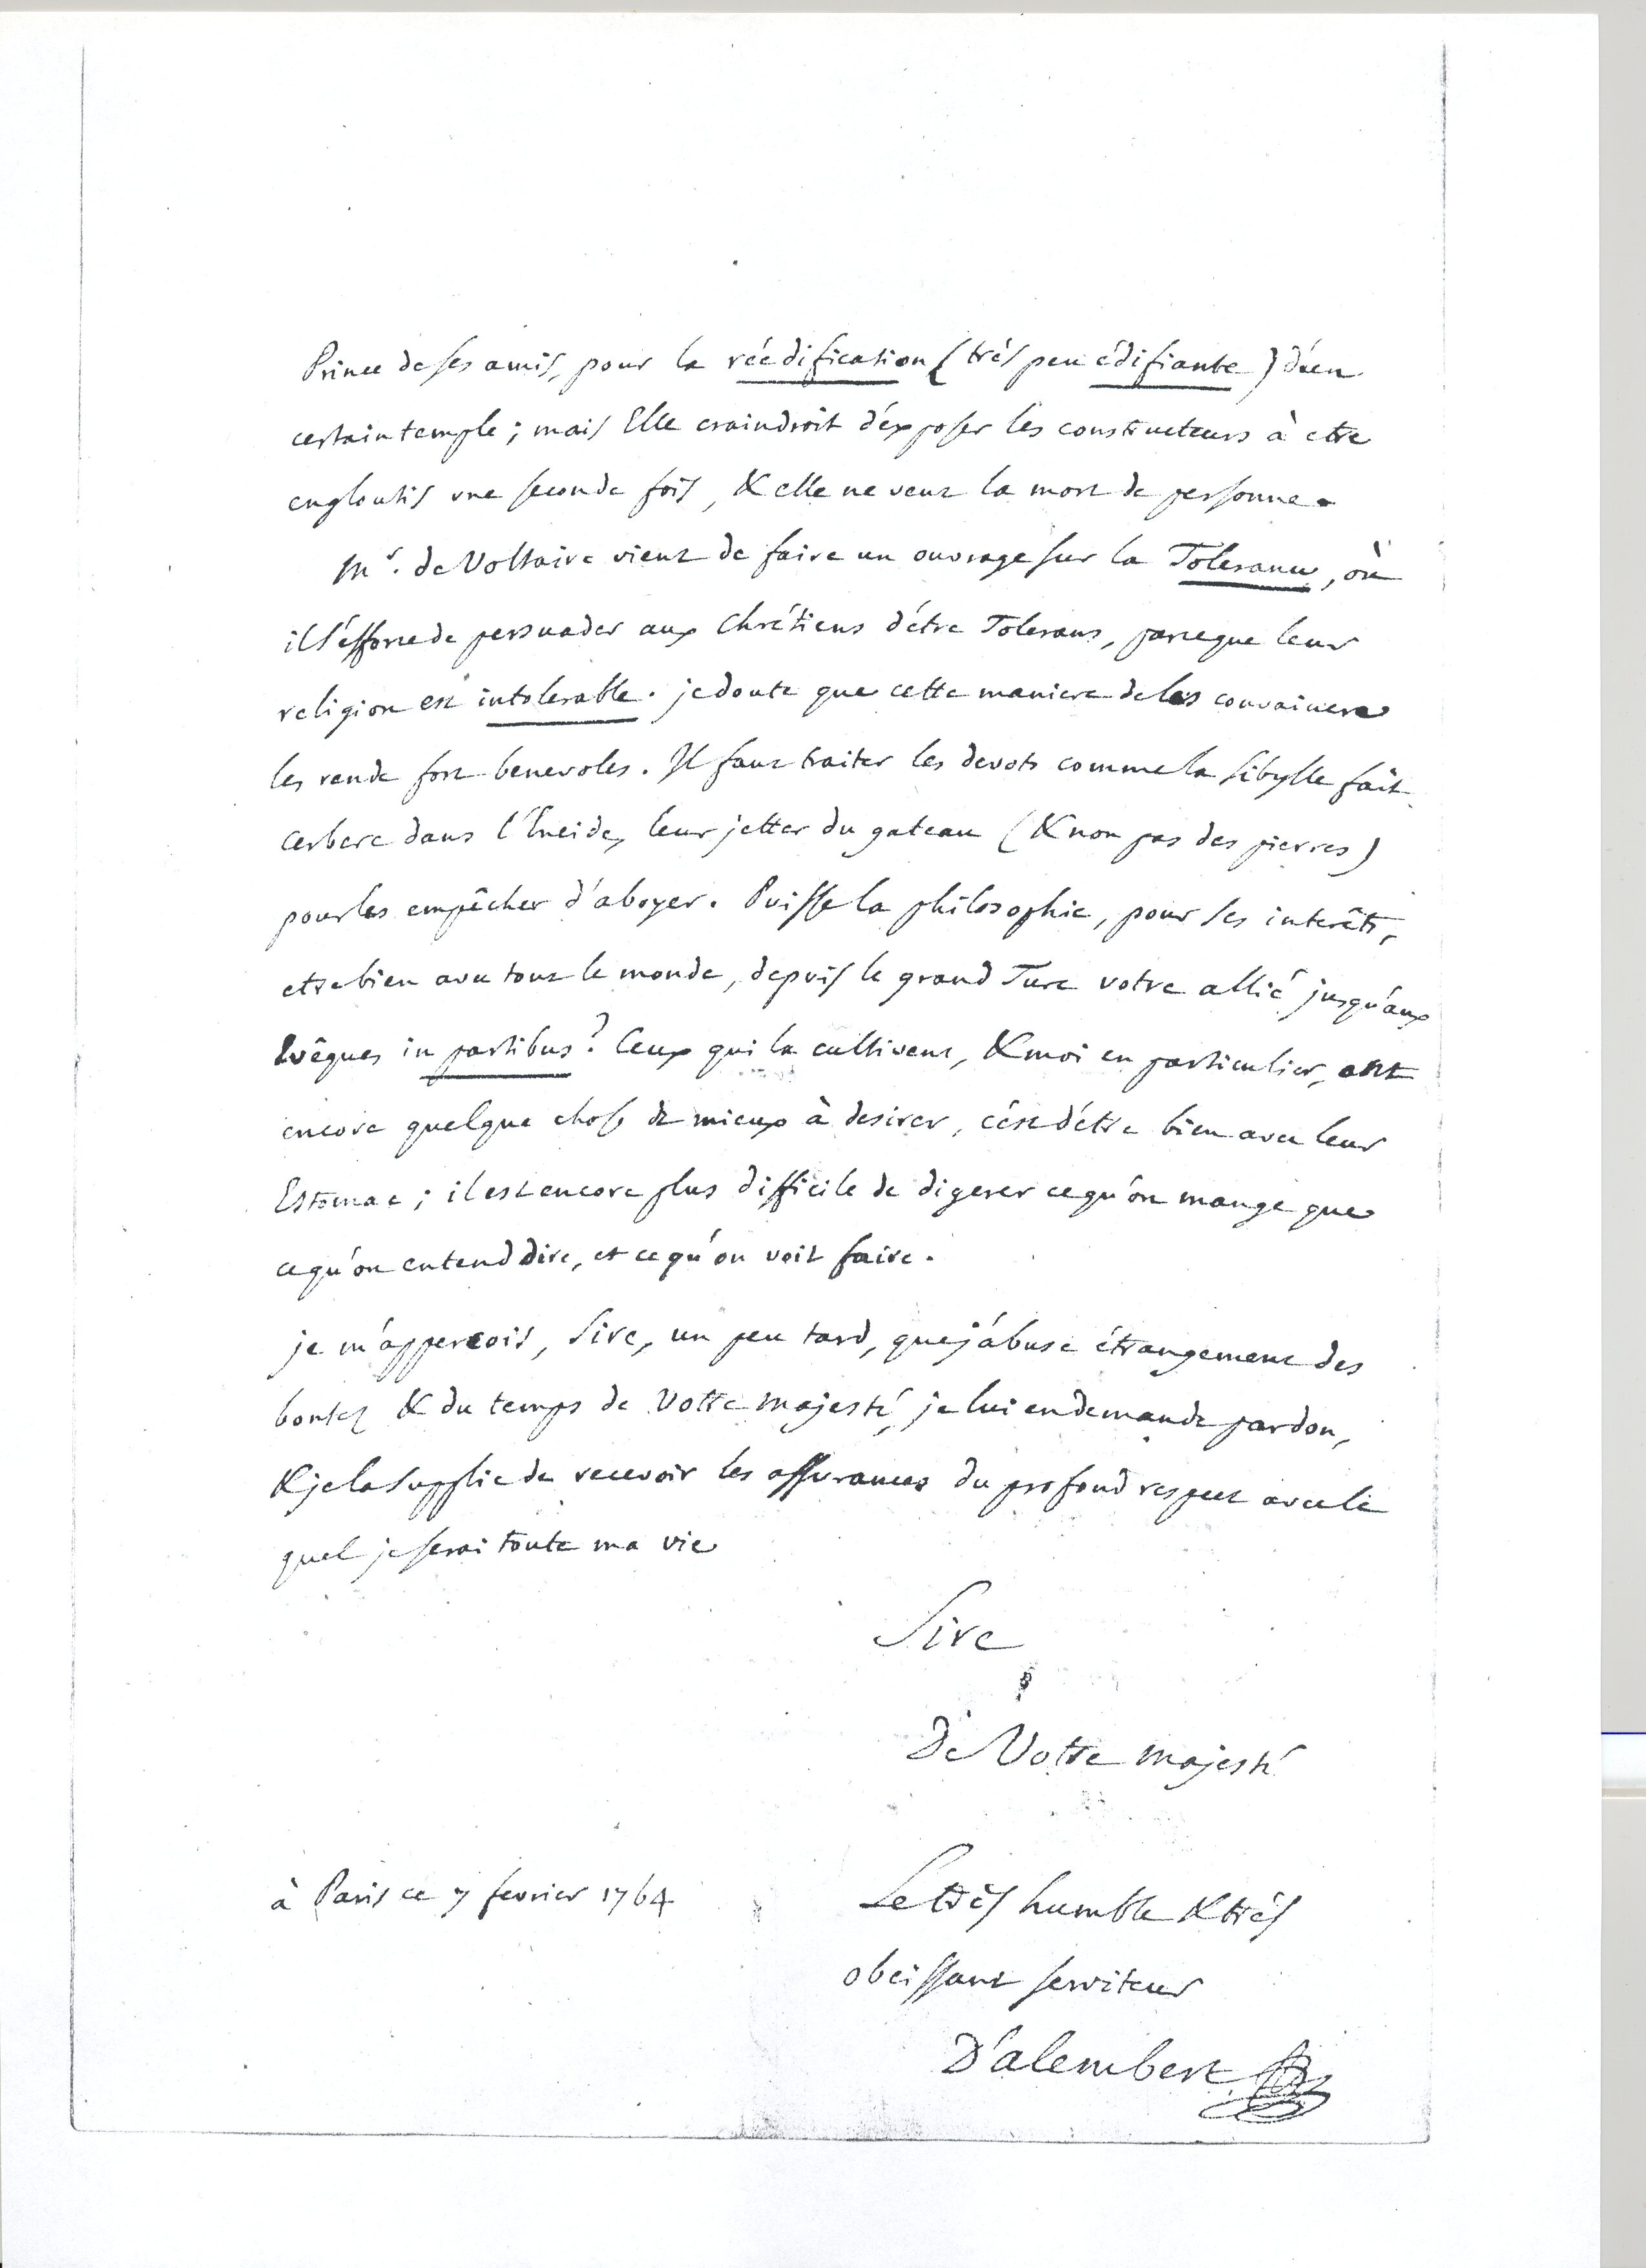 Prince de ses amis, pour la réédification (très peu édifiante) d'un
certain temple; mais Elle craindroit d'exposer les constructeurs à etre
engloutis une seconde fois, & elle ne veut la mort de personne.
Mr. de Voltaire vient de faire un ouvrage sur la Tolerance, où
il s'efforce de persuader aux Chrétiens d'être Tolerans, parceque leur
religion est intolerable. je doute que cette maniere de les convaincre
les rende fort benevoles. Il faut traiter les devots comme la Sibylle fait
Cerbere dans l'Eneide, leur jetter du gateau (& non pas des pierres)
pour les empêcher d'aboyer. Puisse la philosophie, pour ses interêts,
etre bien avec tout le monde, depuis le grand Turc votre allié jusqu'aux
Evêques in partibus? Ceux qui la cultivent, & moi en particulier, ont
encore quelque chose de mieux à desirer, c'est d'être bien avec leur
Estomac; il est encore plus difficile de digerer ce qu'on mange que
ce qu'on entend dire, et ce qu'on voit faire.
je m'apperçois, Sire, un peu tard, que j'abuse étrangement des
bontez & du temps de Votre Majesté, je lui en demande pardon,
& je la supplie de recevoir les assurances du profond respect avec le
quel je serai toute ma vie
Sire
De Votre Majesté
à Paris ce 7 fevrier 1764
Le très humble & très
obeissant serviteur
D'alembert